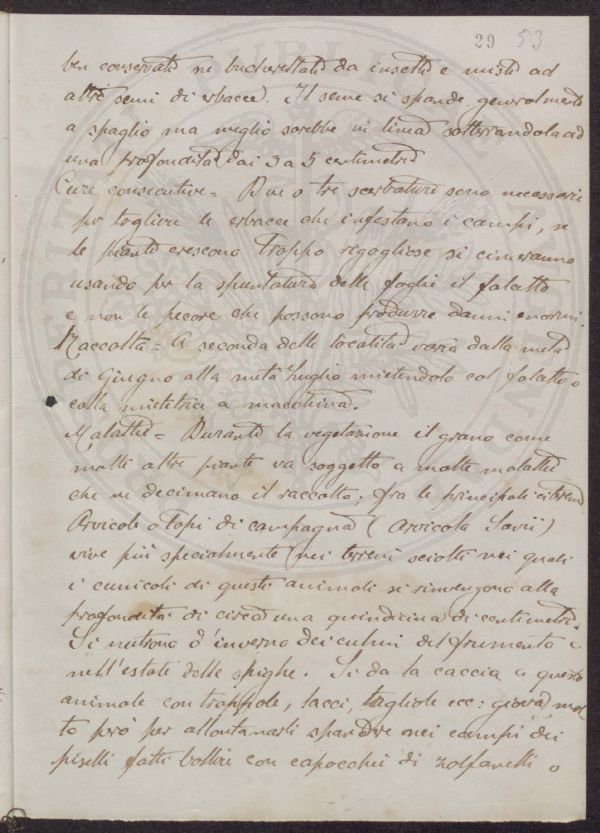 29 53.
ben conservato ne bucherellato da insetti e misto ad
altri semi di erbacce. Il seme si spande generalmente
a spaglio ma meglio sarebbe in linea sotterrandola ad
una profondità dai 3 a 5 centimetri
Cure consecutive = Due o tre scerbature sono necessarie
per togliere le erbacce che infestano i campi, se
le piante crescono troppo rigogliose si cimeranno
usando per la spuntatura delle foglie il falcetto
e non le pecore che possono produrre danni enormi.
Raccolta = A seconda delle località varia dalla metà
di Giugno alla metà Luglio mietendolo col falcetto o
colla mietitrice a macchina.
Malattie = Durante la vegetazione il grano come
molti altre piante va soggetto a molte malattie
che ne decimano il raccolto; fra le principali citeremo
Arvicole o Topi di campagna (Arvicola Savii)
vive più specialmente nei terreni sciolti nei quali
i cunicoli di questi animali si rinvengono alla
profondità di circa una quindicina di centimetri.
Si nutrono d'inverno dei culmi del frumento e
nell'estate delle spighe. Si da la caccia a questo
animale con trappole, lacci, tagliole ecc: giova mol
to però per allontanarli spandere nei campi dei
piselli fatti bollire con capocchie di zolfanelli o